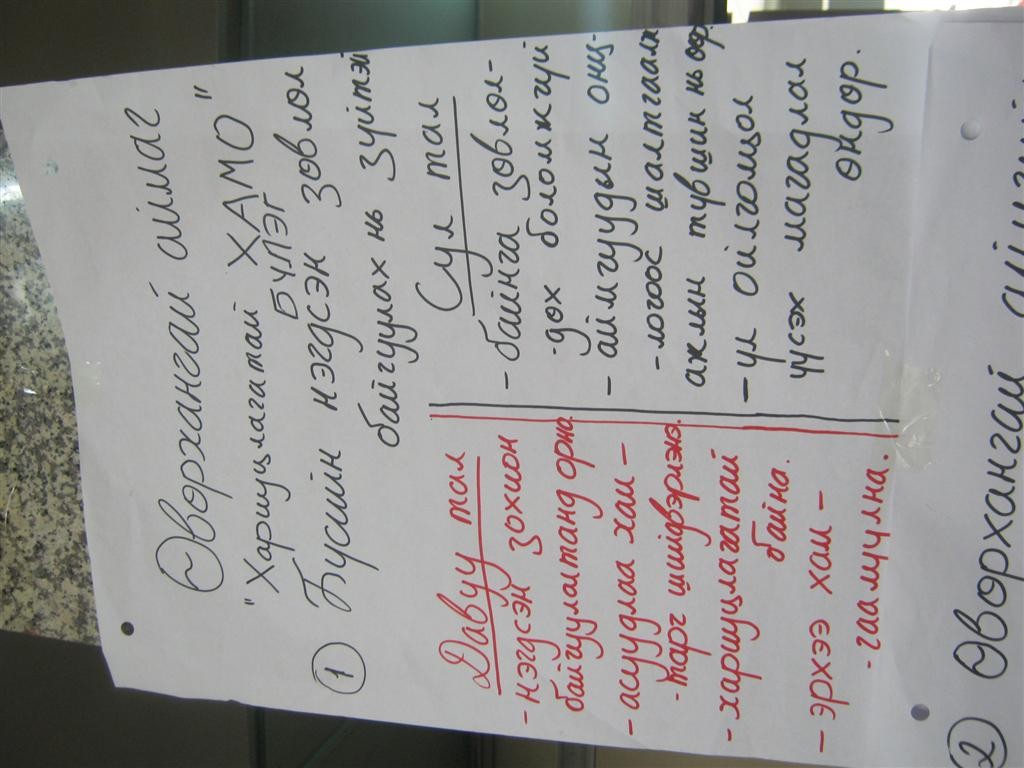 Өворхангай аймаг
"Харицлагатай ХАМО"
БҮЛЭГ
① Бүсийн нэгдсэн зовлол
байгуулах нь зүйтэй
Давуу тал
- нэгдсэн зохион
байгуулалтанд орно
- асуудлаа хам -
- тарч шийвэрлэнэ.
- харицлагатай
байна.
- эрхээ хам -
- гаалуулна.
Сул тал
- байнга зовлол-
- дох боломжгүй
- аймгуудын онц-
- логоос шалтгаалж
ажлын түвшин нь өөр
- үл ойлголцол
үүсэх магадлал
өндөр.
② Өворхангай